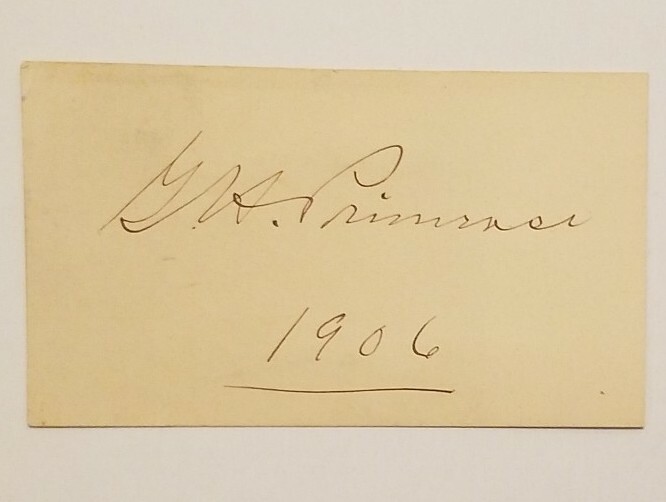 G.H. Primrose
1906